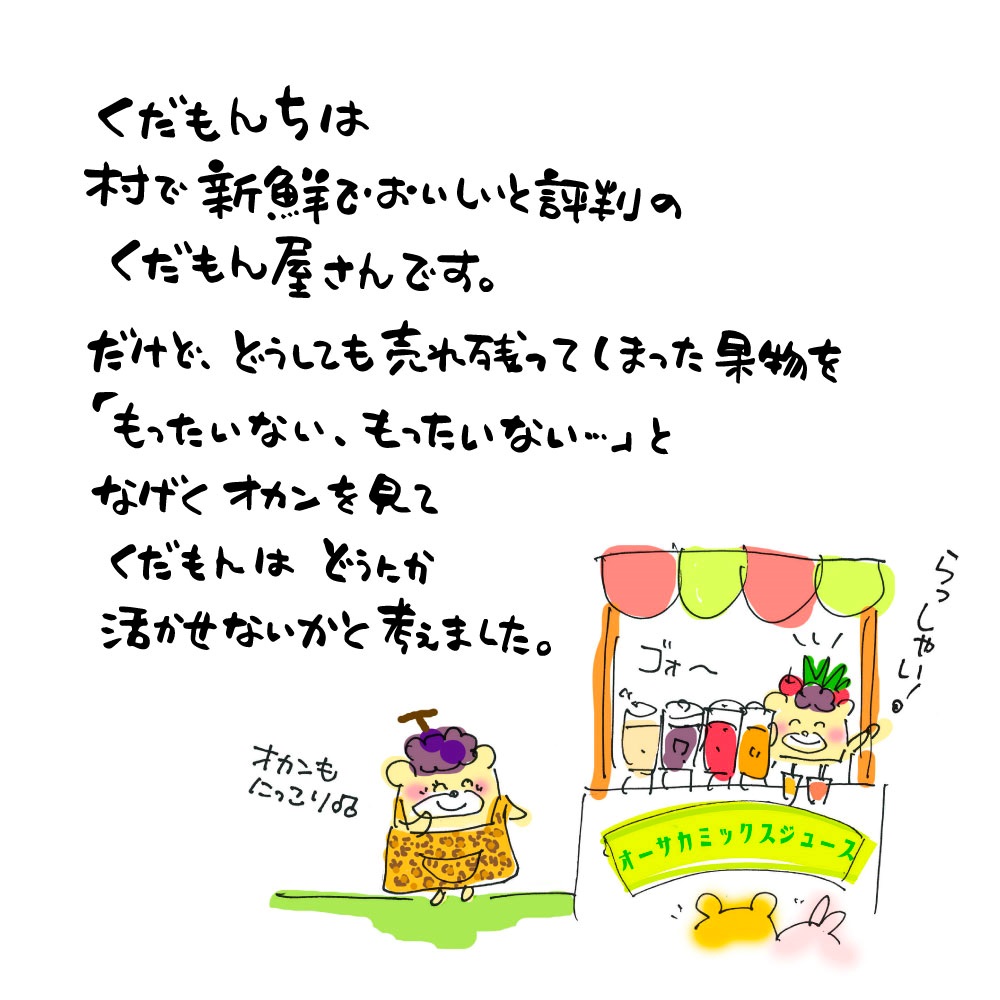 くだもんちは
村で新鮮でおいしいと評判の
くだもん屋さんです。
だけど、どうしても売れ残ってしまった果物を
「もったいない、もったいない…」と
なげくオカンを見て
くだもんは どうにか
活かせないかと考えました。
らっしゃい!
ゴォ〜
オカンも
にっこり♫
オーサカミックスジュース